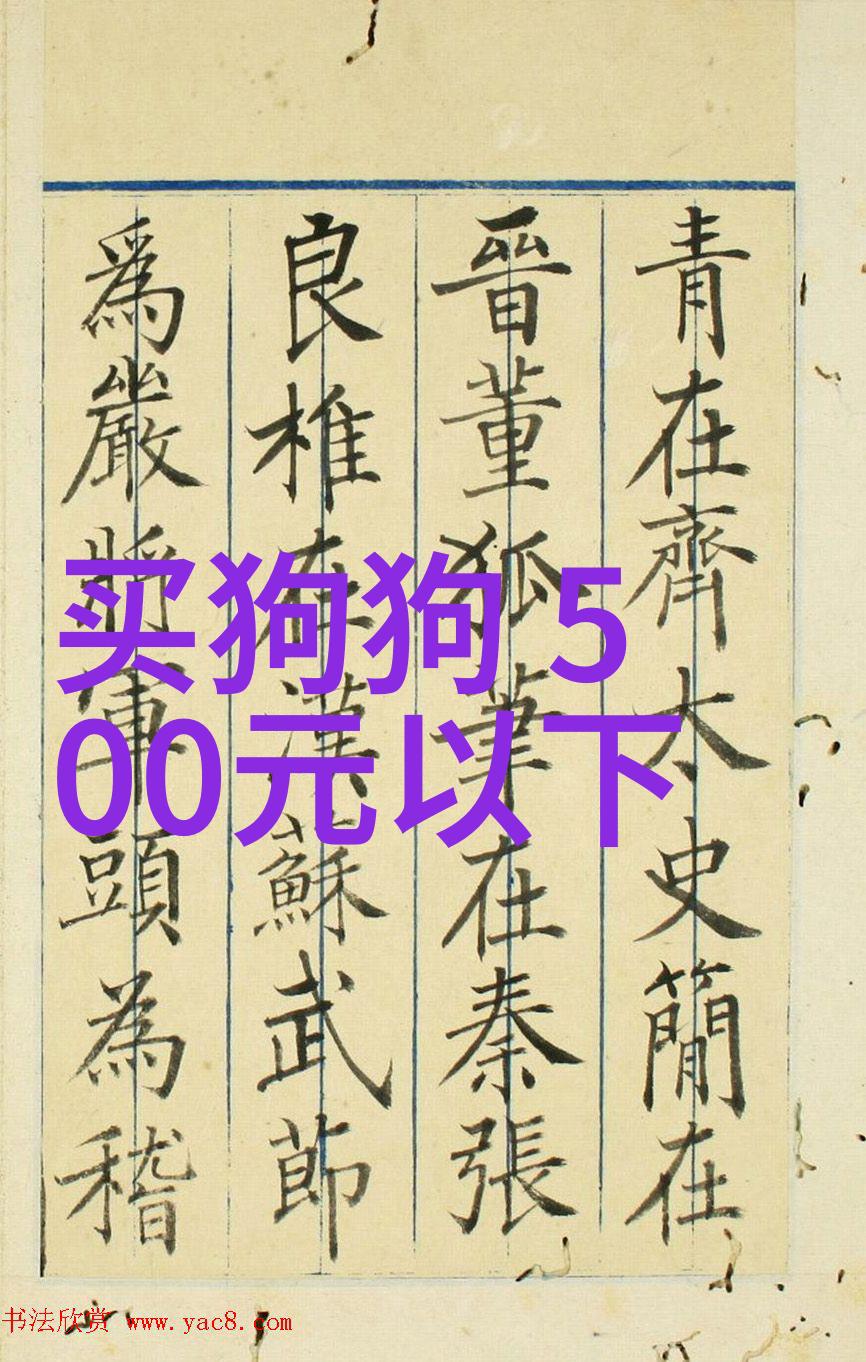 青在齊太史簡在
晉董狐筆在秦張
良椎在漢蘇武節
爲嚴將軍頭為嵇
买狗狗 5
00元以下
书法欣赏 www.yac8.com